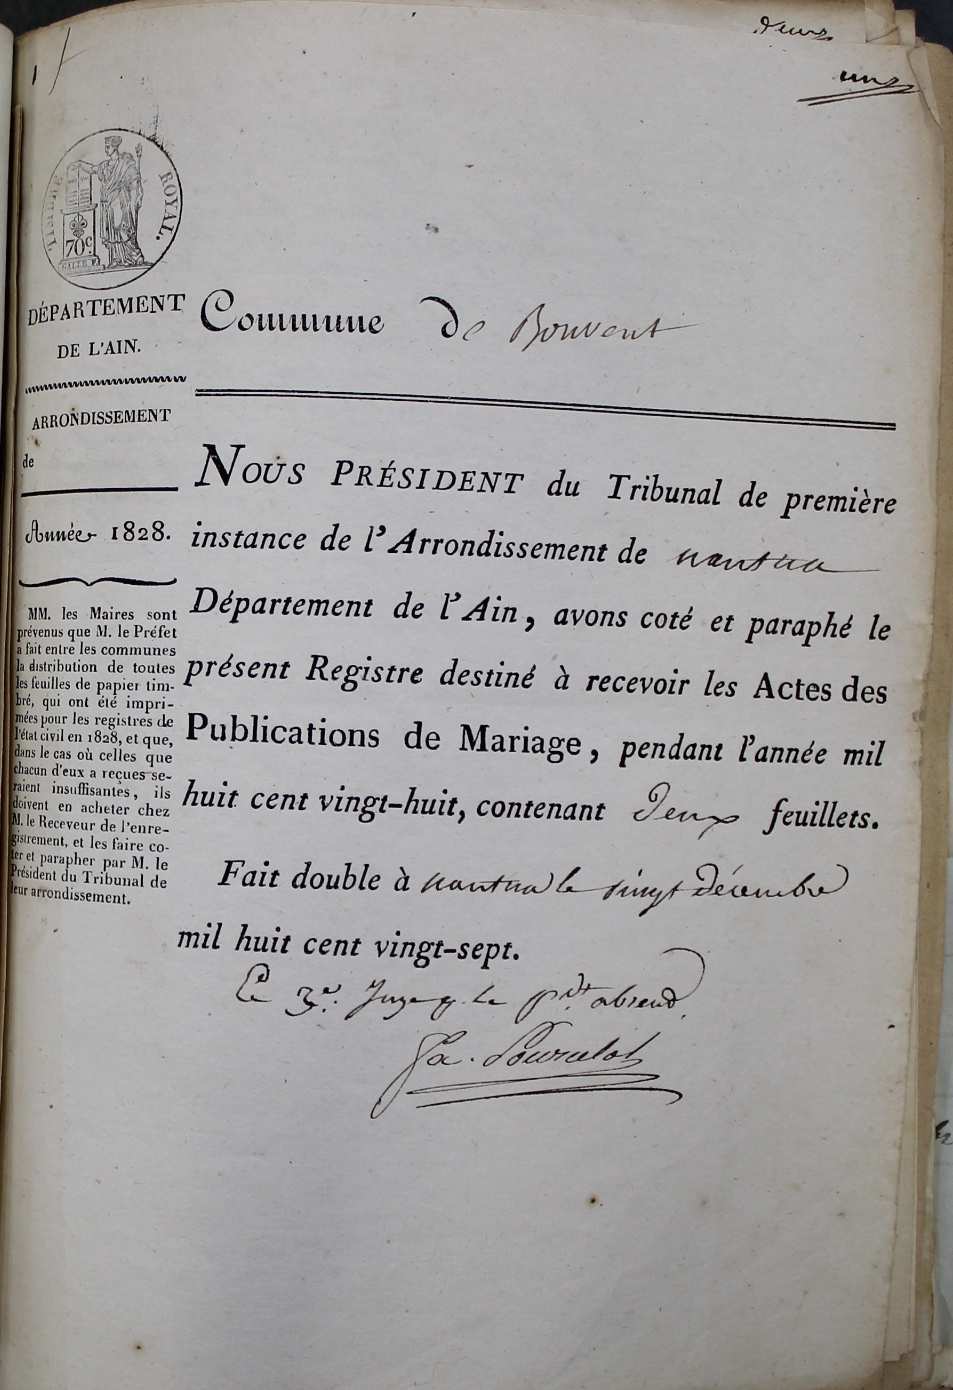 deux
un
1
TIMBRE ROYAL.
70c.
DÉPARTEMENT
DE L'AIN.
ARRONDISSEMENT
de
Année 1828.
MM. les Maires sont
prévenus que M. le Préfet
a fait entre les communes
la distribution de toutes
les feuilles de papier tim-
bré, qui ont été impri-
mées pour les registres de
l'état civil en 1828, et que,
dans le cas où celles que
chacun d'eux a reçues se-
raient insuffisantes, ils
doivent en acheter chez
M. le Receveur de l'enre-
gistrement, et les faire co-
ter et parapher par M. le
Président du Tribunal de
leur arrondissement.
Commune de Bouvent
NOUS PRÉSIDENT du Tribunal de première
instance de l'Arrondissement de nantua
Département de l'Ain, avons coté et paraphé le
présent Registre destiné à recevoir les Actes des
Publications de Mariage, pendant l'année mil
huit cent vingt-huit, contenant Deux feuillets.
Fait double à nantua le vingt Décembre
mil huit cent vingt-sept.
Le 3e. Juge p. le pdt. absend